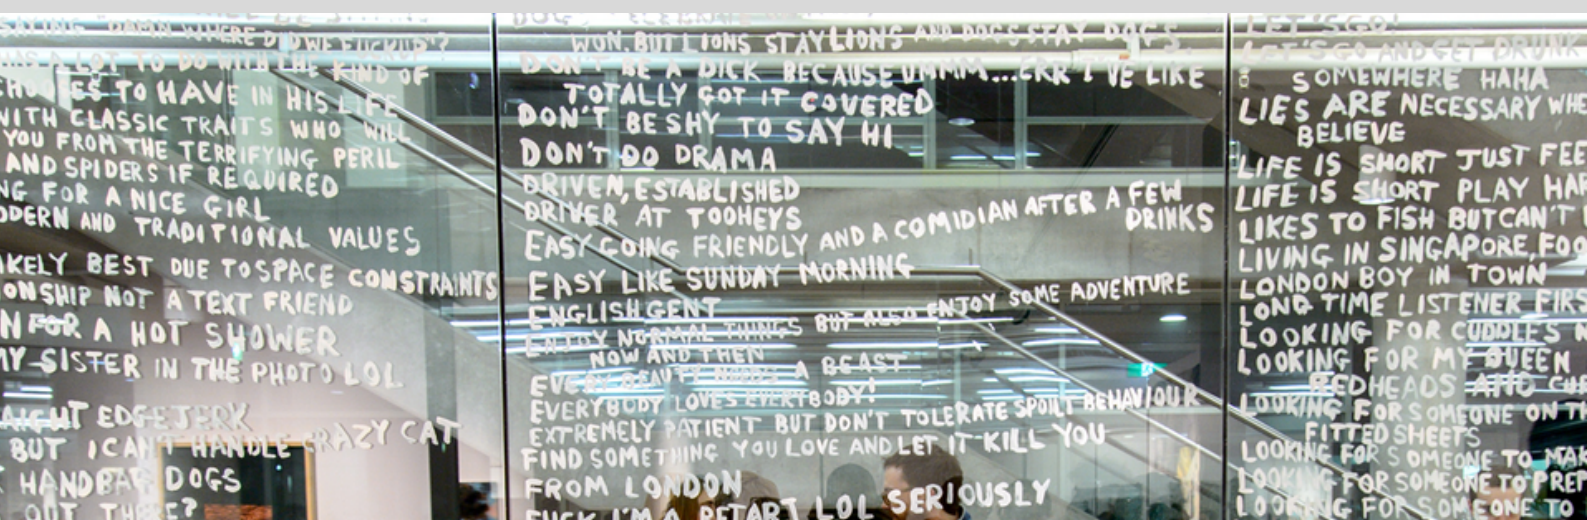 SAYING "DAMN WHERE DID WE FUCKUP"?
A LOT TO DO WITH THE KIND OF
TO HAVE IN HIS LIFE
WITH CLASSIC TRAITS WHO WILL
YOU FROM THE TERRIFYING PERIL
AND SPIDERS IF REQUIRED
FOR A NICE GIRL
AND TRADITIONAL VALUES
BEST DUE TO SPACE CONSTRAINTS
NOT A TEXT FRIEND
FOR A HOT SHOWER
MY SISTER IN THE PHOTO LOL
EDGE JERK
BUT I CAN'T HANDLE CRAZY CAT
HANDBAG DOGS
OUT THERE?
WON, BUT LIONS STAY LIONS AND DOGS STAY DOGS
DON'T BE A DICK BECAUSE UMMM...ERR I'VE LIKE
TOTALLY GOT IT COVERED
DON'T BE SHY TO SAY HI
DON'T DO DRAMA
DRIVEN, ESTABLISHED
DRIVER AT TOOHEYS
EASY GOING FRIENDLY AND A COMIDIAN AFTER A FEW
DRINKS
EASY LIKE SUNDAY MORNING
ENGLISH GENT
ENJOY NORMAL THINGS BUT ALSO ENJOY SOME ADVENTURE
NOW AND THEN
EVERY BEAUTY NEEDS A BEAST
EVERYBODY LOVES EVERYBODY!
EXTREMELY PATIENT BUT DON'T TOLERATE SPOILT BEHAVIOUR
FIND SOMETHING YOU LOVE AND LET IT KILL YOU
FROM LONDON
FUCK I'M A RETART LOL SERIOUSLY
LET'S GO!
LET'S GO AND GET DRUNK
SOMEWHERE HAHA
LIES ARE NECESSARY
BELIEVE
LIFE IS SHORT JUST
LIFE IS SHORT PLAY
LIKES TO FISH BUT CAN'T
LIVING IN SINGAPORE,
LONDON BOY IN TOWN
LONG TIME LISTENER
LOOKING FOR CUDDLES
LOOKING FOR MY QUEEN
REDHEADS AND
LOOKING FOR SOMEONE ON
FITTED SHEETS
LOOKING FOR SOMEONE TO
LOOKING FOR SOMEONE TO
LOOKING FOR SOMEONE TO